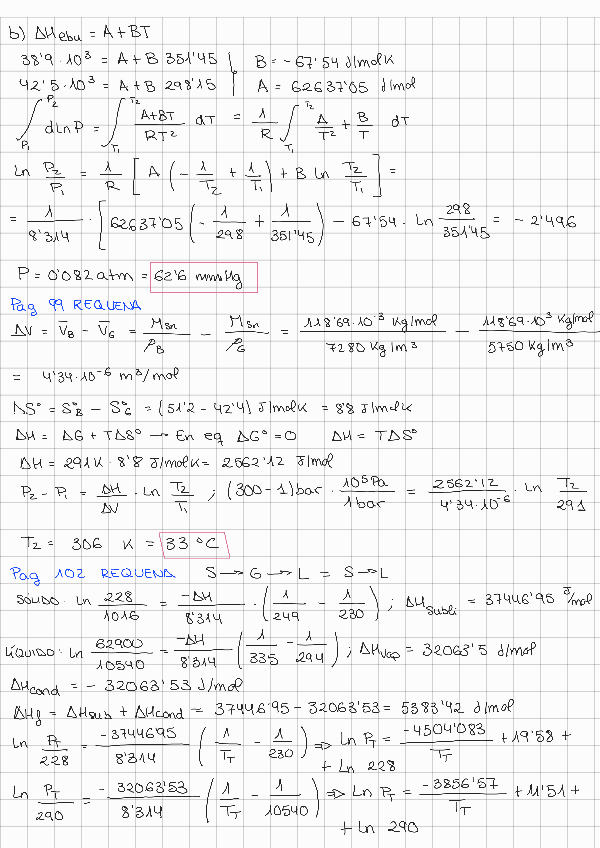 b) ΔHebu = A + BT
38'9 · 10³ = A + B 351'45 | B = - 67'54 J/molK
42'5 · 10³ = A + B 298'15 | A = 62637'05 J/mol
∫_{P1}^{P2} dLnP = ∫_{T1}^{T2} (A+BT)/(RT²) dT = 1/R ∫_{T1}^{T2} A/T² + B/T dT
Ln P2/P1 = 1/R [ A ( - 1/T2 + 1/T1 ) + B Ln T2/T1 ] =
= 1/8'314 · [ 62637'05 ( - 1/298 + 1/351'45 ) - 67'54 · Ln 298/351'45 = - 2'496
P = 0'082 atm = 62'6 mmHg
Pag 99 REQUENA
ΔV = V̄B - V̄G = Msn/ρB - Msn/ρG = 118'69·10⁻³ Kg/mol / 7280 Kg/m³ - 118'69·10³ Kg/mol / 5750 Kg/m³
= 4'34·10⁻⁶ m³/mol
ΔS° = S°B - S°G = (51'2 - 42'4) J/molK = 8'8 J/molK
ΔH = ΔG + TΔS° → En eq ΔG° = 0 ΔH = TΔS°
ΔH = 291K · 8'8 J/molK = 2562'12 J/mol
P2 - P1 = ΔH/ΔV · Ln T2/T1 ; (300-1) bar · 10⁵Pa/1 bar = 2562'12/4'34·10⁻⁶ · Ln T2/291
T2 = 306 K = 33 °C
Pag 102 REQUENA S → G → L = S → L
SÓLIDO: Ln 228/1016 = -ΔH/8'314 · ( 1/249 - 1/230 ) ; ΔHsubli = 37446'95 J/mol
LÍQUIDO: Ln 62900/10540 = -ΔH/8'314 ( 1/335 - 1/294 ) ; ΔHvap = 32063'5 J/mol
ΔHcond = - 32063'53 J/mol
ΔHf = ΔHsub + ΔHcond = 37446'95 - 32063'53 = 5383'42 J/mol
Ln PT/228 = -37446'95/8'314 ( 1/TT - 1/230 ) ⇒ Ln PT = -4504'083/TT + 19'58 +
+ Ln 228
Ln PT/290 = - 32063'53/8'314 ( 1/TT - 1/10540 ) ⇒ Ln PT = -3856'57/TT + 11'51 +
+ Ln 290